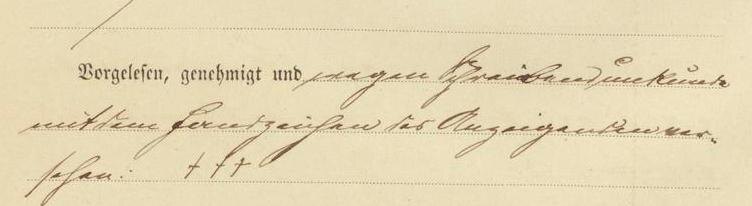 Vorgelesen, genehmigt und wegen Schreibensunkunde
mit dem Handzeichen des Anzeigenden ver-
sehen: +++